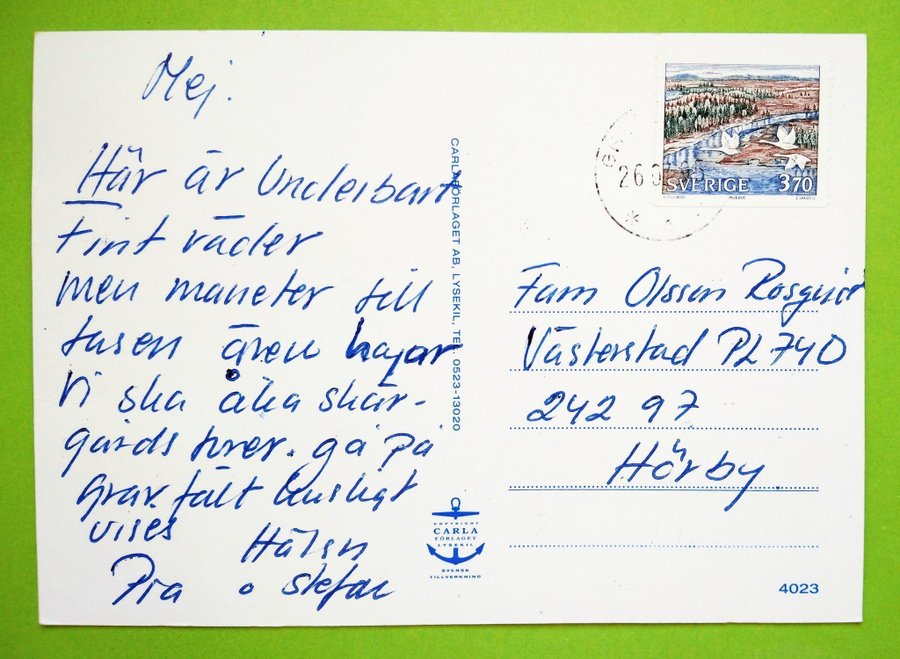 Hej.
Här är Underbart
fint väder
men maneter till
tusen även hajar
Vi ska åka skär-
gårds turer. gå på
grav.fält husligt
vises
Hälsn
Pia o stefan
CARLAFÖRLAGET AB, LYSEKIL, TEL. 0523-13020
COPYRIGHT
CARLA
FÖRLAGET
LYSEKIL
SVENSK
TILLVERKNING
26.0
SVERIGE 3.70
Fam Olsson Rosquist
Västerstad PL 740
242 97
Hörby.
4023